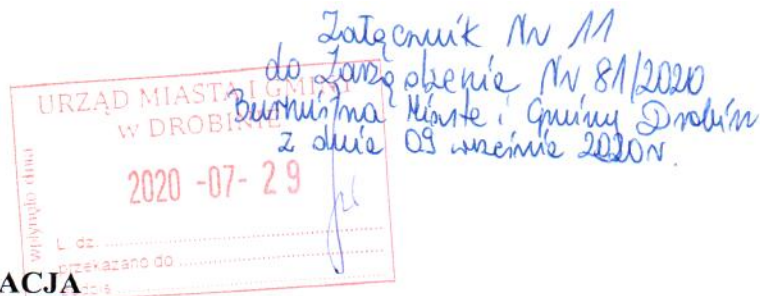 Załącznik Nr 11
do Zarządzenia Nr 81/2020
Burmistrza Miasta i Gminy Drobin
z dnia 09 września 2020 r.
URZĄD MIASTA I GMINY
W DROBINIE
wpłynęło dnia
2020 -07- 29
L. dz.
przekazano do
ACJA